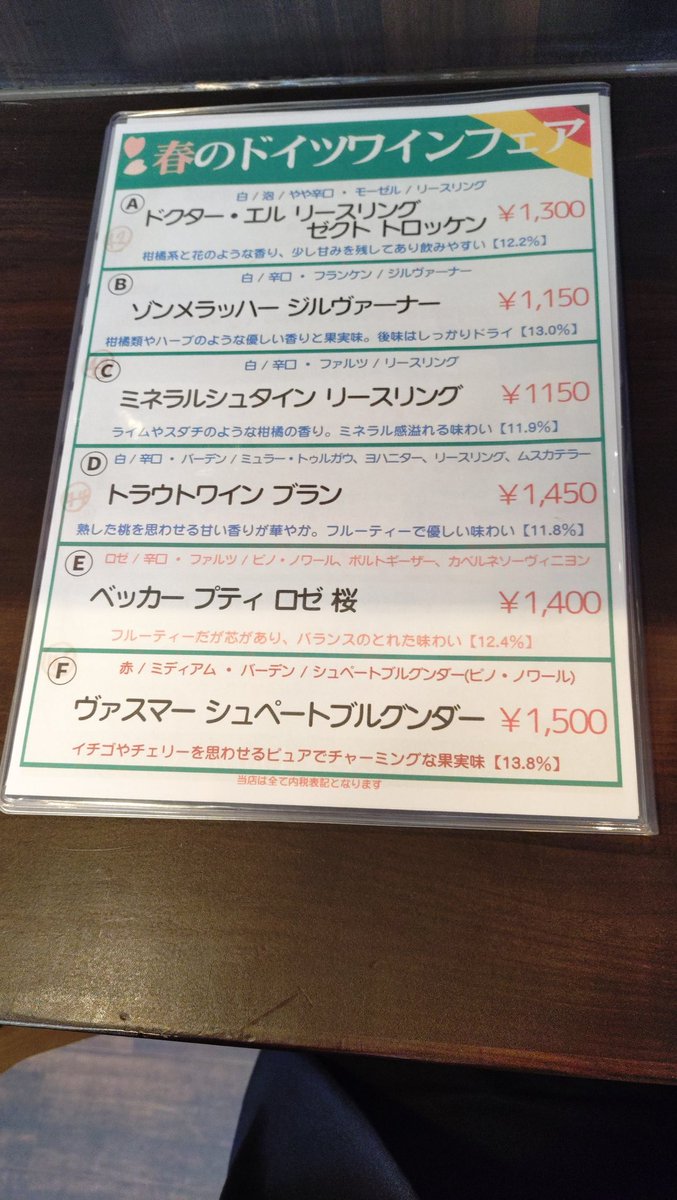 春のドイツワインフェア
A
白 / 泡 / やや辛口 ・ モーゼル / リースリング
ドクター・エル リースリング
ゼクト トロッケン
¥1,300
柑橘系と花のような香り、少し甘みを残してあり飲みやすい【12.2%】
B
白 / 辛口 ・ フランケン / ジルヴァーナー
ゾンメラッハー ジルヴァーナー ¥1,150
柑橘類やハーブのような優しい香りと果実味。後味はしっかりドライ【13.0%】
C
白 / 辛口 ・ ファルツ / リースリング
ミネラルシュタイン リースリング ¥1150
ライムやスダチのような柑橘の香り。ミネラル感溢れる味わい【11.9%】
D
白 / 辛口 ・ バーデン / ミュラー・トゥルガウ、ヨハニター、リースリング、ムスカテラー
トラウトワイン ブラン ¥1,450
熟した桃を思わせる甘い香りが華やか。フルーティーで優しい味わい【11.8%】
E
ロゼ / 辛口 ・ ファルツ / ピノ・ノワール、ポルトギーザー、カベルネソーヴィニヨン
ベッカー プティ ロゼ 桜 ¥1,400
フルーティーだが芯があり、バランスのとれた味わい【12.4%】
F
赤 / ミディアム ・ バーデン / シュペートブルグンダー(ピノ・ノワール)
ヴァスマー シュペートブルグンダー ¥1,500
イチゴやチェリーを思わせるピュアでチャーミングな果実味【13.8%】
当店は全て内税表記となります